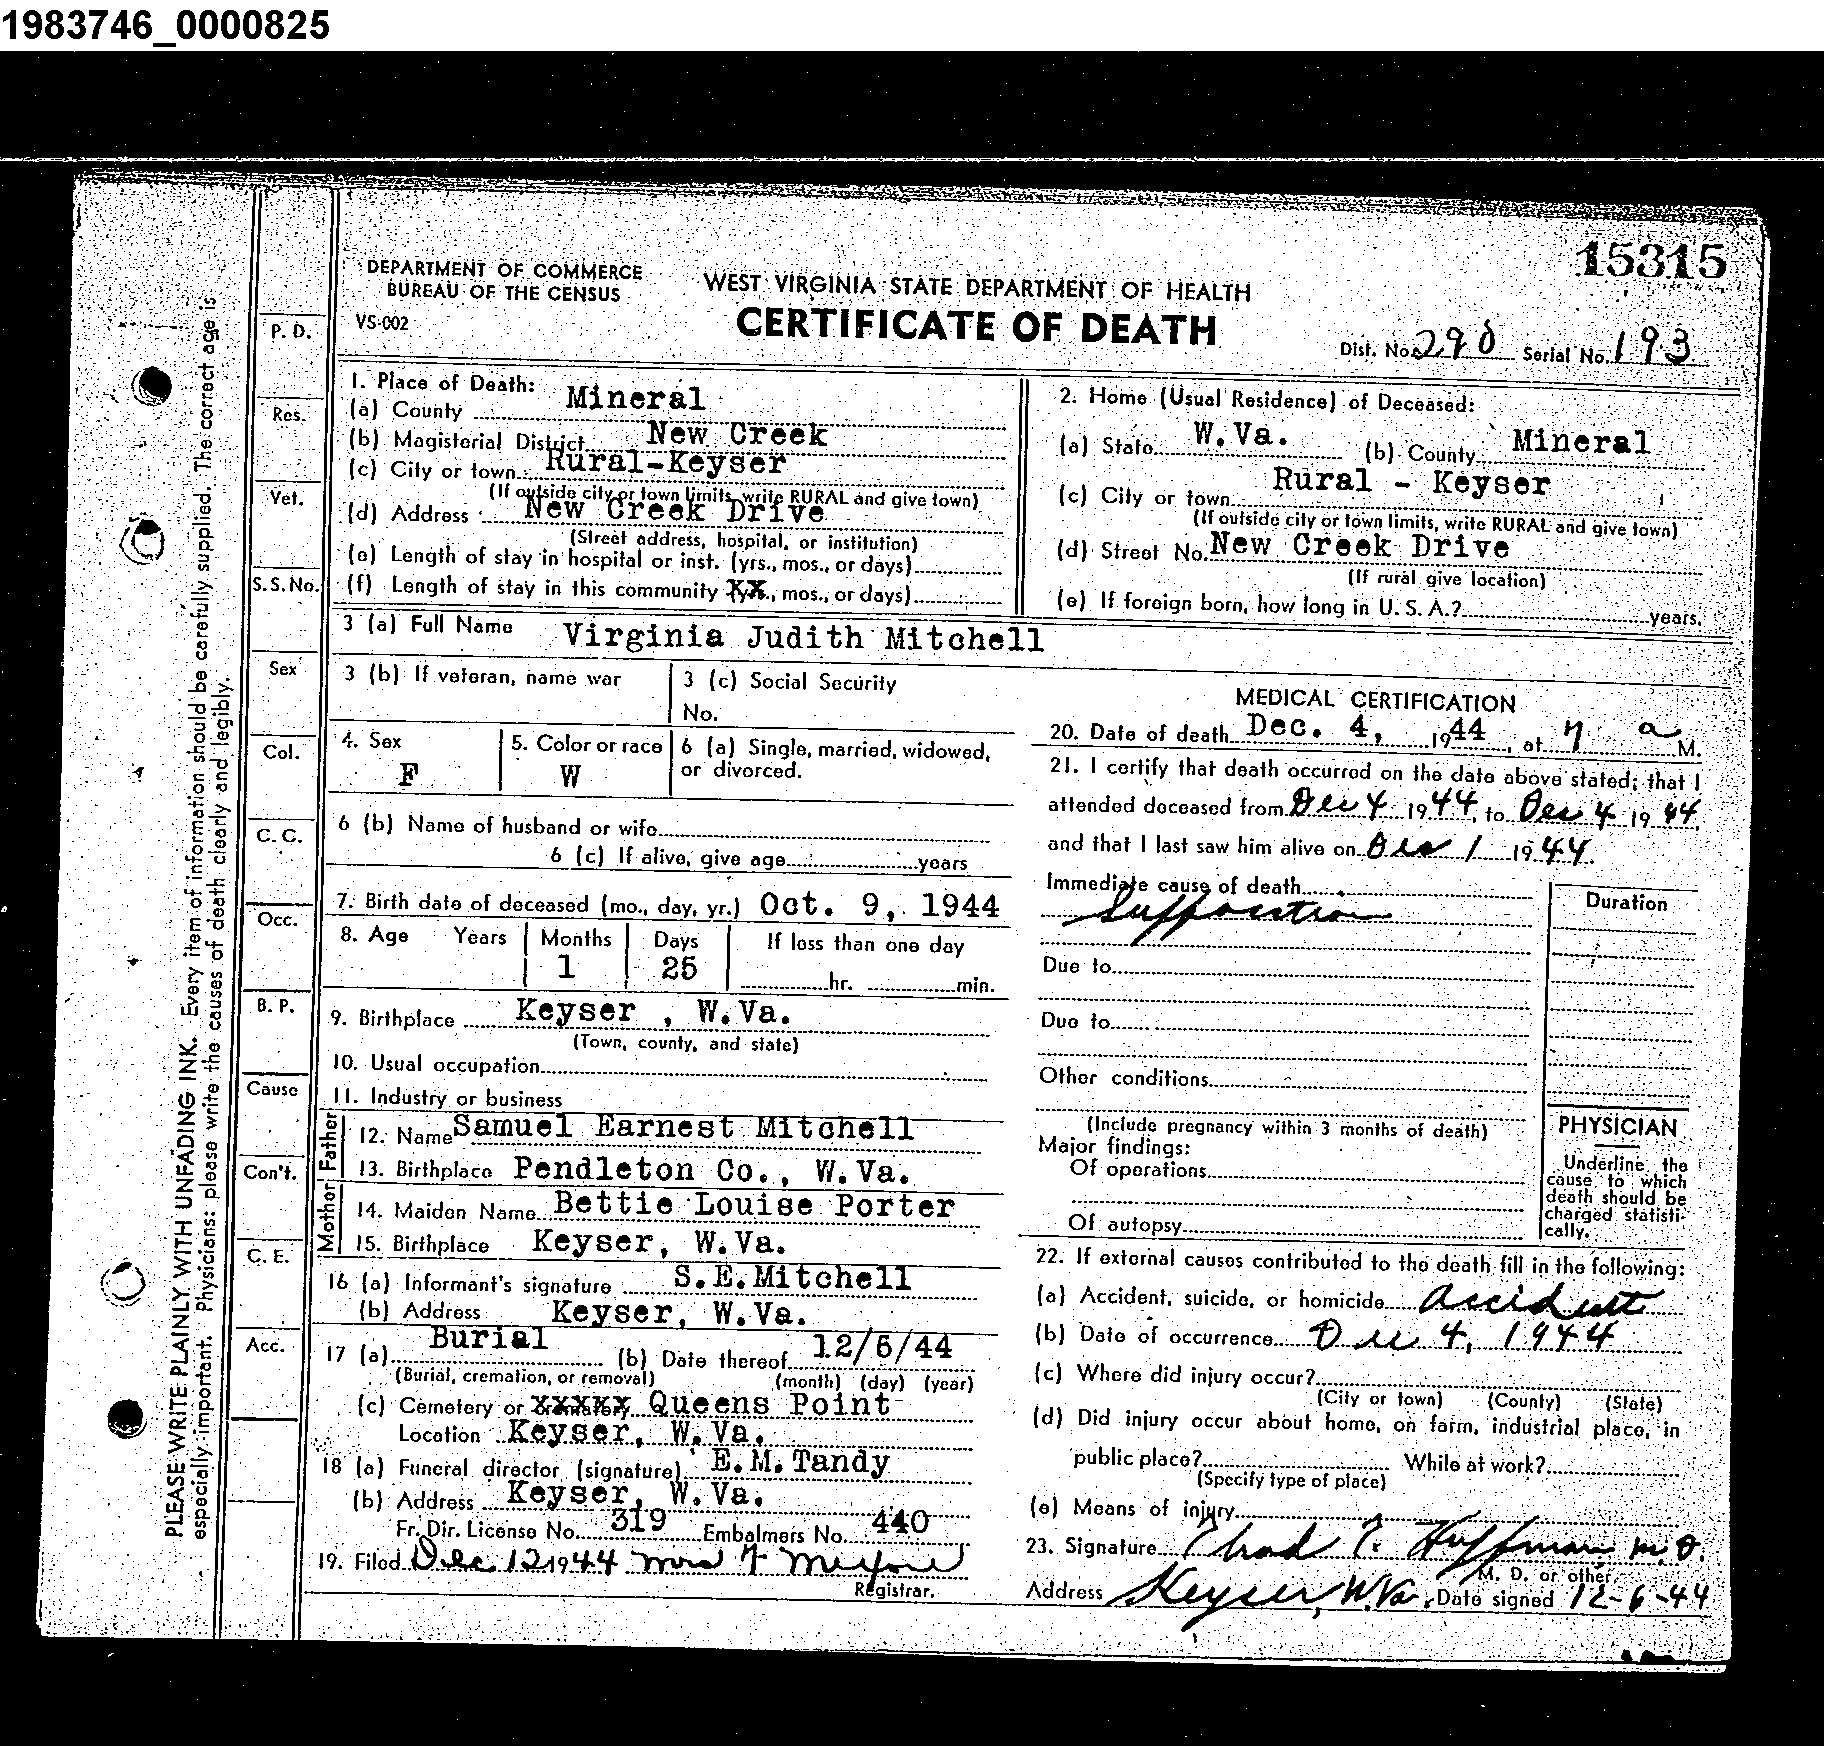 1983746_0000825
15315
DEPARTMENT OF COMMERCE
BUREAU OF THE CENSUS
VS-002
WEST VIRGINIA STATE DEPARTMENT OF HEALTH
CERTIFICATE OF DEATH
Dist. No. 290 Serial No. 193
PLEASE WRITE PLAINLY WITH UNFADING INK. Every item of information should be carefully supplied. The correct age is
especially important. Physicians: please write the causes of death clearly and legibly.
P. D.
Res.
Vet.
S.S. No.
Sex
Col.
C. C.
Occ.
B. P.
Cause
Con't.
C. E.
Acc.
1. Place of Death:
(a) County Mineral
(b) Magisterial District New Creek
(c) City or town Rural-Keyser
(If outside city or town limits, write RURAL and give town)
(d) Address New Creek Drive
(Street address, hospital, or institution)
(e) Length of stay in hospital or inst. (yrs., mos., or days)
(f) Length of stay in this community XX., mos., or days)
2. Home (Usual Residence) of Deceased:
(a) State W.Va. (b) County Mineral
(c) City or town Rural - Keyser
(If outside city or town limits, write RURAL and give town)
(d) Street No. New Creek Drive
(If rural give location)
(e) If foreign born, how long in U. S. A.? years.
3 (a) Full Name Virginia Judith Mitchell
3 (b) If veteran, name war
3 (c) Social Security
No.
4. Sex
F
5. Color or race
W
6 (a) Single, married, widowed,
or divorced.
6 (b) Name of husband or wife
6 (c) If alive, give age years
7. Birth date of deceased (mo., day, yr.) Oct. 9, 1944
8. Age Years Months Days If less than one day
1 25 hr. min.
9. Birthplace Keyser , W.Va.
(Town, county, and state)
10. Usual occupation
11. Industry or business
Father
12. Name Samuel Earnest Mitchell
13. Birthplace Pendleton Co., W.Va.
Mother
14. Maiden Name Bettie Louise Porter
15. Birthplace Keyser, W.Va.
16 (a) Informant's signature S.E.Mitchell
(b) Address Keyser, W.Va.
17 (a) Burial (b) Date thereof 12/5/44
(Burial, cremation, or removal) (month) (day) (year)
(c) Cemetery or xxxxx Queens Point
Location Keyser, W.Va.
18 (a) Funeral director (signature) E.M.Tandy
(b) Address Keyser, W.Va.
Fr. Dir. License No. 319 Embalmers No. 440
19. Filed Dec 12 1944 Mrs F
Registrar.
MEDICAL CERTIFICATION
20. Date of death Dec. 4, 1944, at 7 a M.
21. I certify that death occurred on the date above stated; that I
attended deceased from Dec 4 1944, to Dec 4 1944,
and that I last saw him alive on Dec 1 1944.
Immediate cause of death
Duration
Due to
Due to
Other conditions
(Include pregnancy within 3 months of death)
Major findings:
Of operations
Of autopsy
PHYSICIAN
Underline the
cause to which
death should be
charged statisti-
cally.
22. If external causes contributed to the death fill in the following:
(a) Accident, suicide, or homicide accident
(b) Date of occurrence Dec 4, 1944
(c) Where did injury occur?
(City or town) (County) (State)
(d) Did injury occur about home, on farm, industrial place, in
public place? While at work?
(Specify type of place)
(e) Means of injury
23. Signature Thad T. Huffman M.D.
M. D. or other.
Address Keyser, W.Va. Date signed 12-6-44